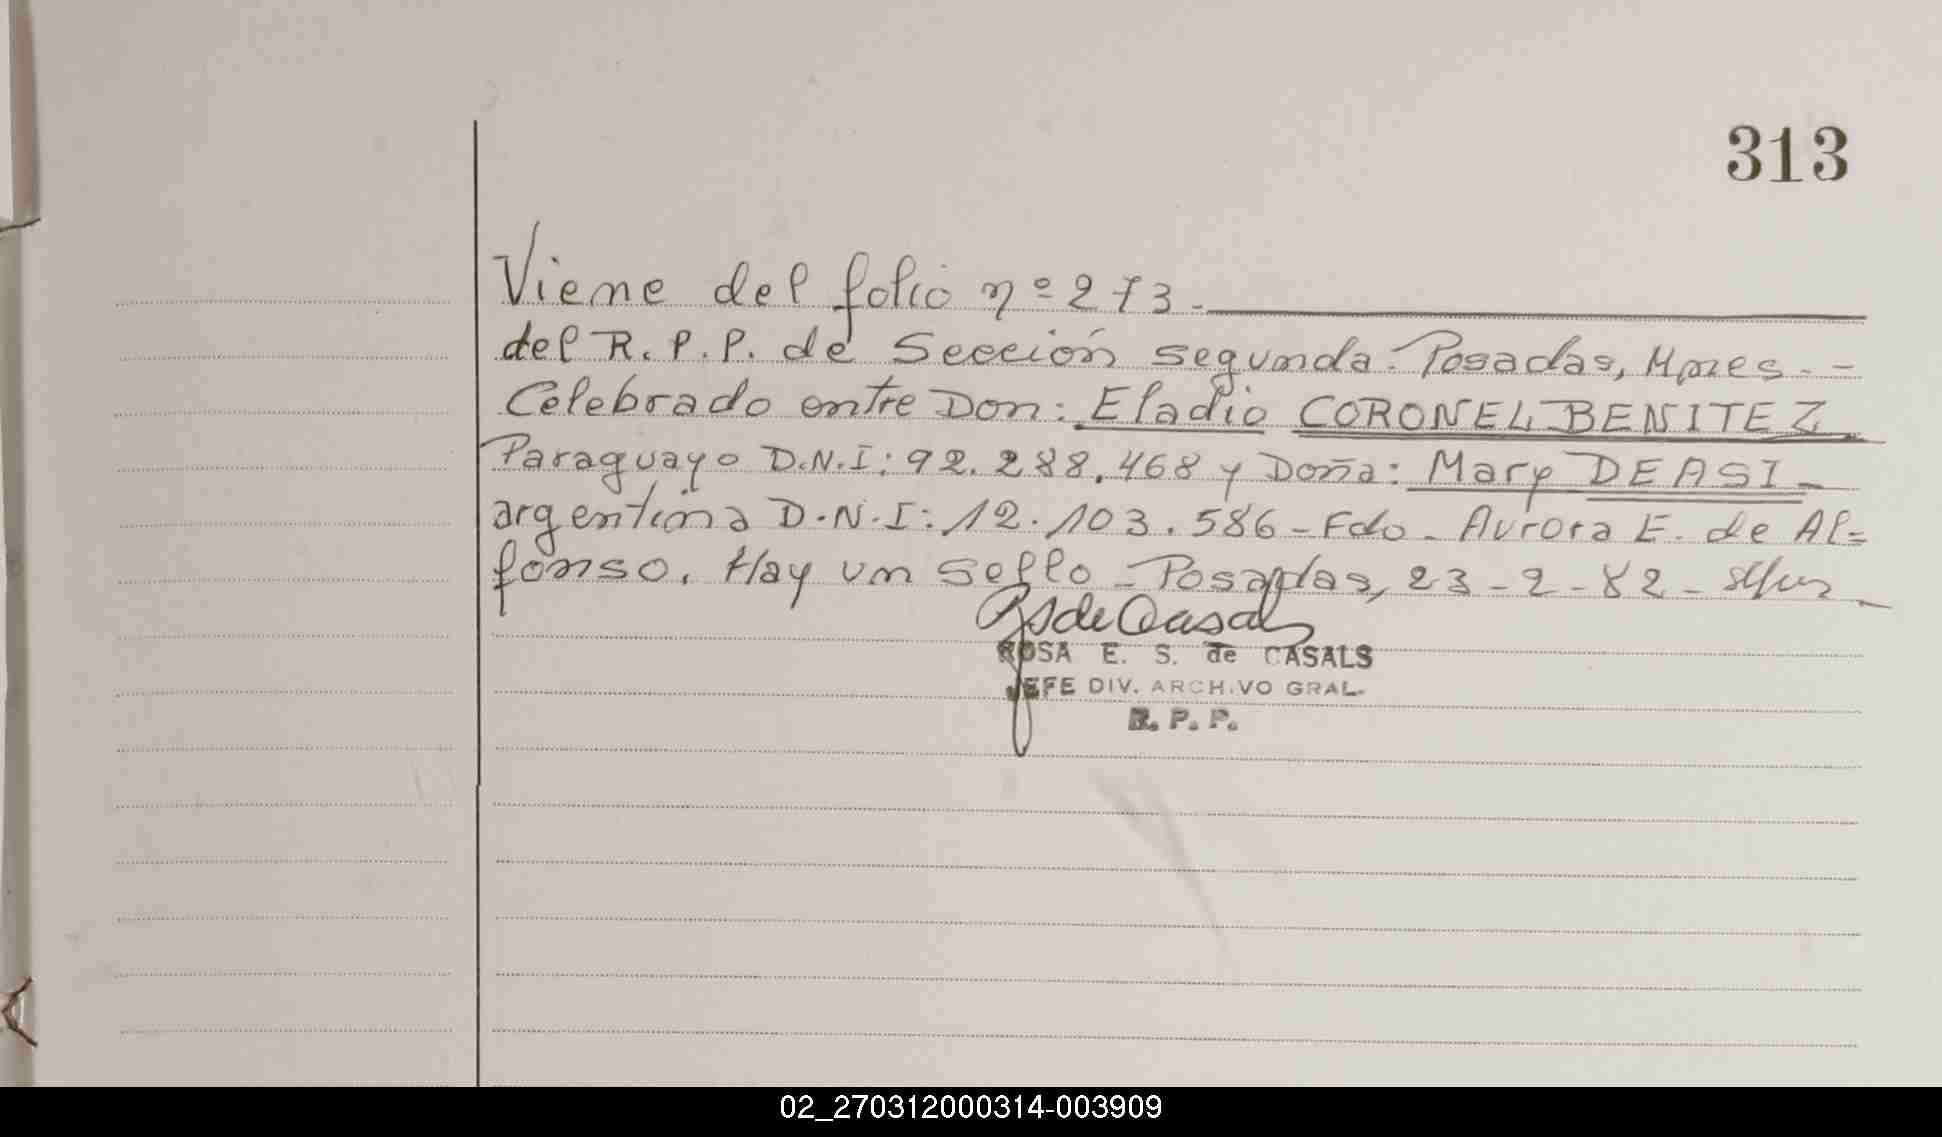 313
Viene del folio nº 273.
del R. P. P. de Sección segunda. Posadas, Mnes. -
Celebrado entre Don: Eladio CORONEL BENITEZ
Paraguayo D.N.I: 92.288.468 y Doña: Mary DEASI
argentina D.N.I: 12.103.586 - Fdo. Aurora E. de Al=
fonso. Hay un sello - Posadas, 23-2-82 -
ROSA E. S. de CASALS
JEFE DIV. ARCHIVO GRAL.
R. P. P.
02_270312000314-003909